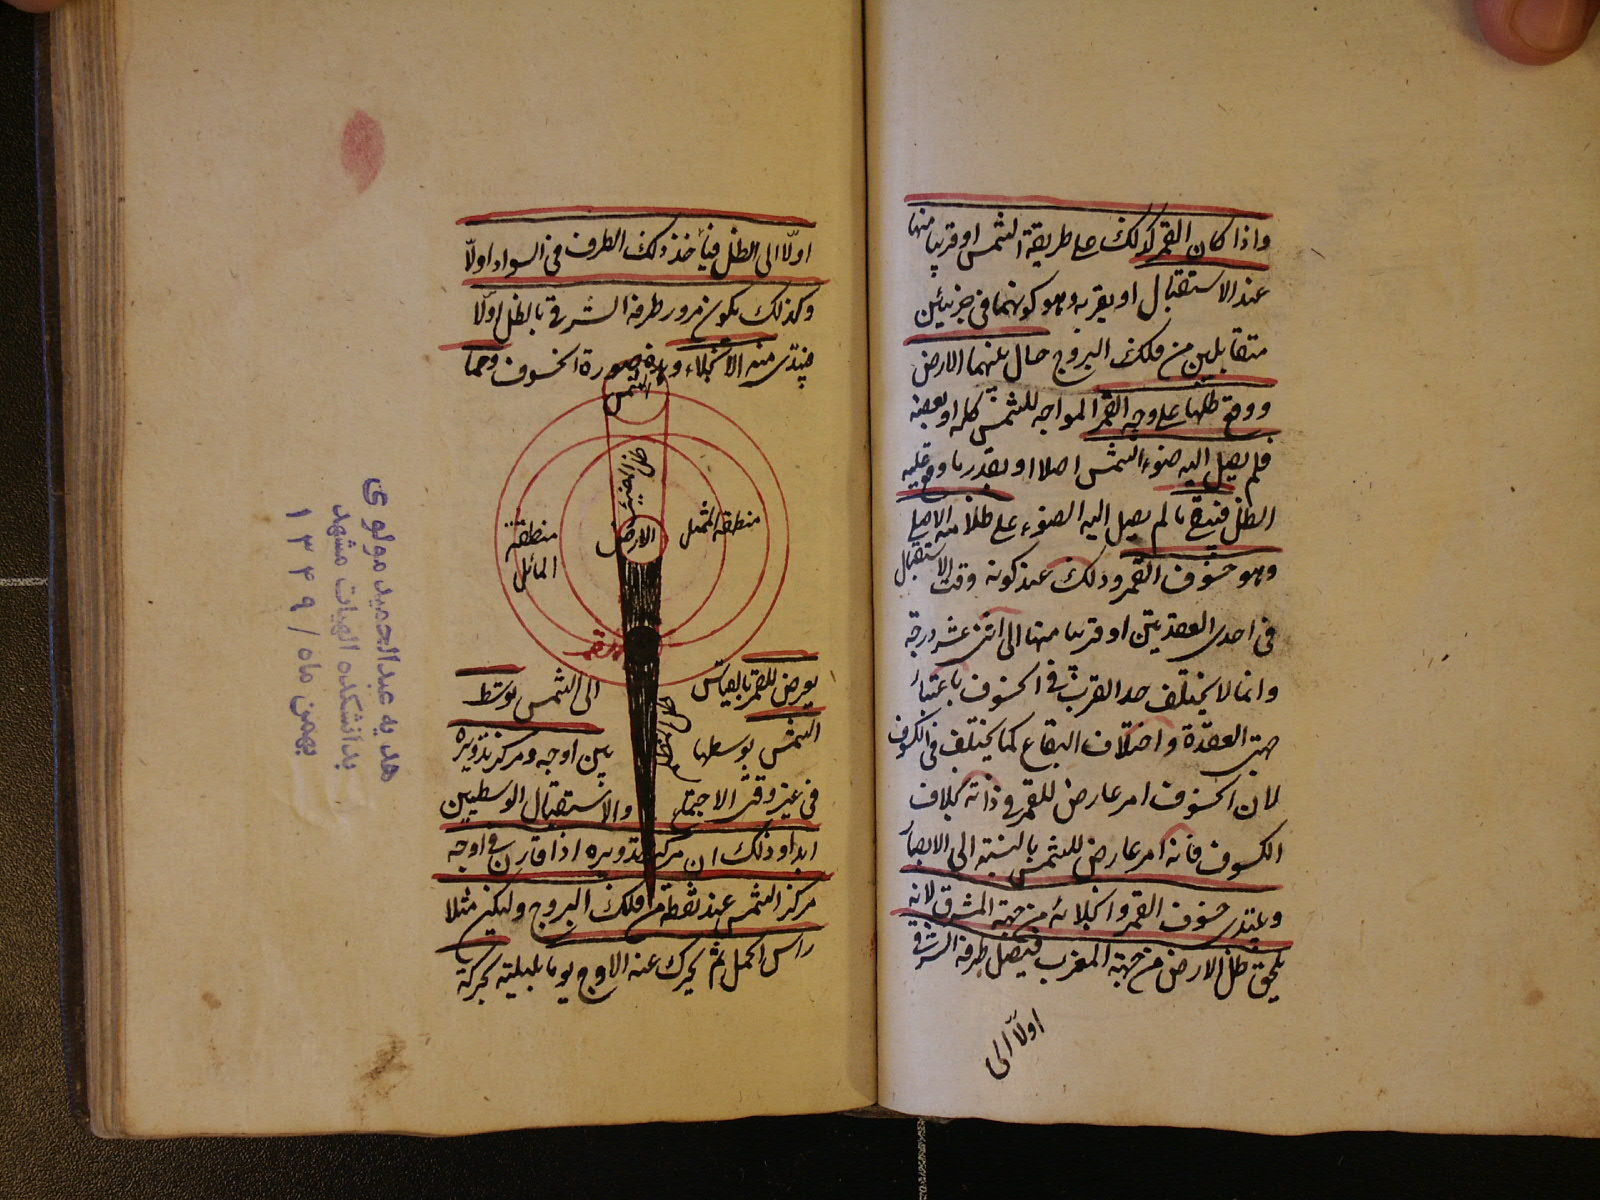 واذا كان القمر كذلك على طريقة الشمس او قريبا منها
عند الاستقبال او بقربه وهو كونهما فى جزئين
متقابلين من فلك البروج حال بينهما الارض
ووقع ظلها على وجه القمر المواجه للشمس كله او بعضه
فلم يصل اليه ضوء الشمس اصلا او بقدر ما وقع عليه
الظل فيبقى ما لم يصل اليه الضوء على ظلامه الاصلى
وهو خسوف القمر وذلك عند كونه وقت الاستقبال
فى احدى العقدتين او قريبا منها الى اثنى عشر درجة
وانما لا يختلف حد القرب فى الخسوف باعتبار
جهتى العقدة واختلاف البقاع كما يختلف فى الكسوف
لان الخسوف امر عارض للقمر فى ذاته بخلاف
الكسوف فانه امر عارض للشمس بالنسبة الى الابصار
ويبتدى خسوف القمر وانجلائه من جهة المشرق لانه
يلحق ظل الارض من جهة المغرب فيصل طرفه الشرقى
اولا الى
اولّا الى الظل فيأخذ ذلك الطرف فى السواد اولّا
وكذلك يكون مرور طرفه الشرقى بالظل اولّا
فيبتدى منه الانجلاء وهذه صورة الخسوف ومما
الشمس
منطقة الممثل
الارض
منطقة المائل
القمر
يعرض للقمر بالقياس الى الشمس توسط
الشمس بوسطها بين اوجه ومركز تدويره
فى غير وقتى الاجتماع والاستقبال الوسطيين
ابدا وذلك ان مركز تدويره اذا قارن فى اوجه
مركز الشمس عند نقطة من فلك البروج وليكن مثلا
راس الحمل ثم تحرك عنه الاوج يوما بليلته بحركة
هديه عبدالحميد مولوى
بدانشكده الهيات مشهد
بهمن ماه / ۱۳۴۹